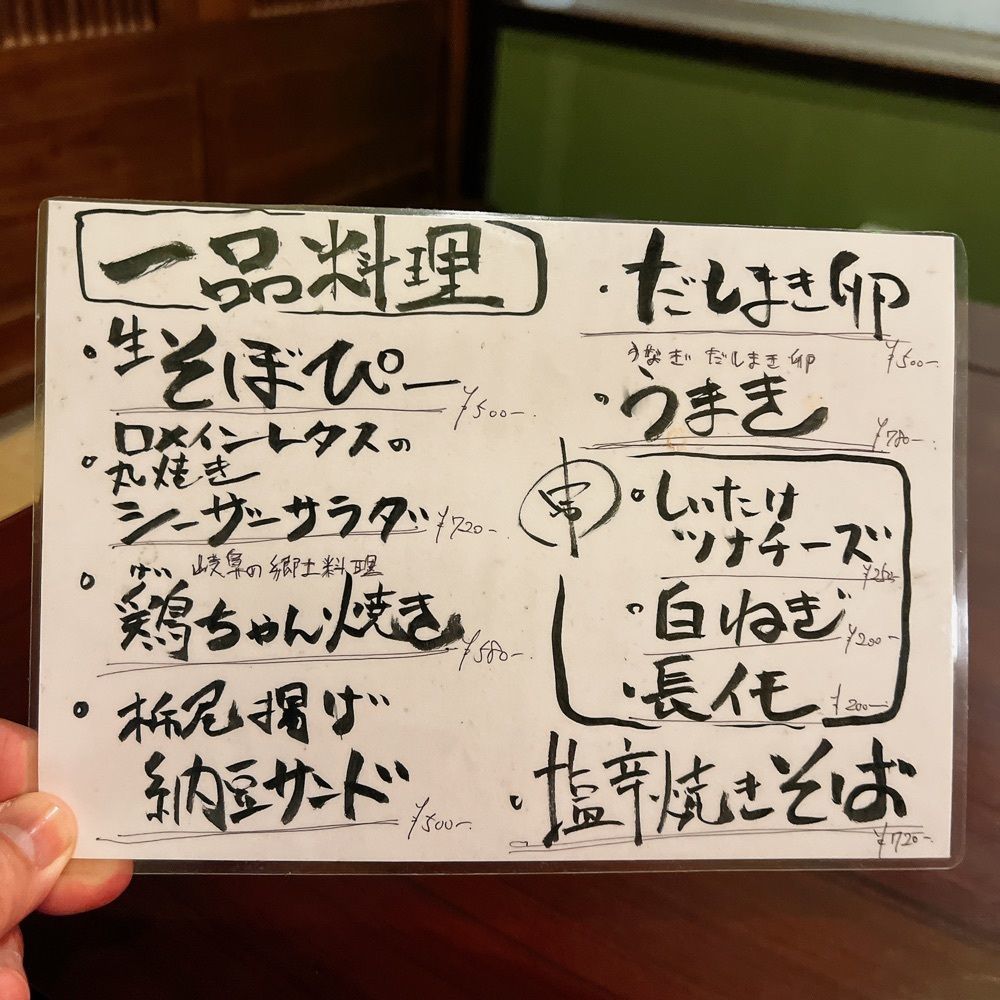 一品料理
・生そぼぴー ¥500-
・ロメインレタスの
丸焼き
シーザーサラダ ¥720-
岐阜の郷土料理
けい
・鶏ちゃん焼き ¥580-
・栃尾揚げ
納豆サンド ¥500-
・だしまき卵
¥500-
うなぎ だしまき卵
・うまき
¥780-
串
・しいたけ
ツナチーズ
¥250-
・白ねぎ ¥200-
・長イモ ¥200-
・塩辛焼きそば
¥720-